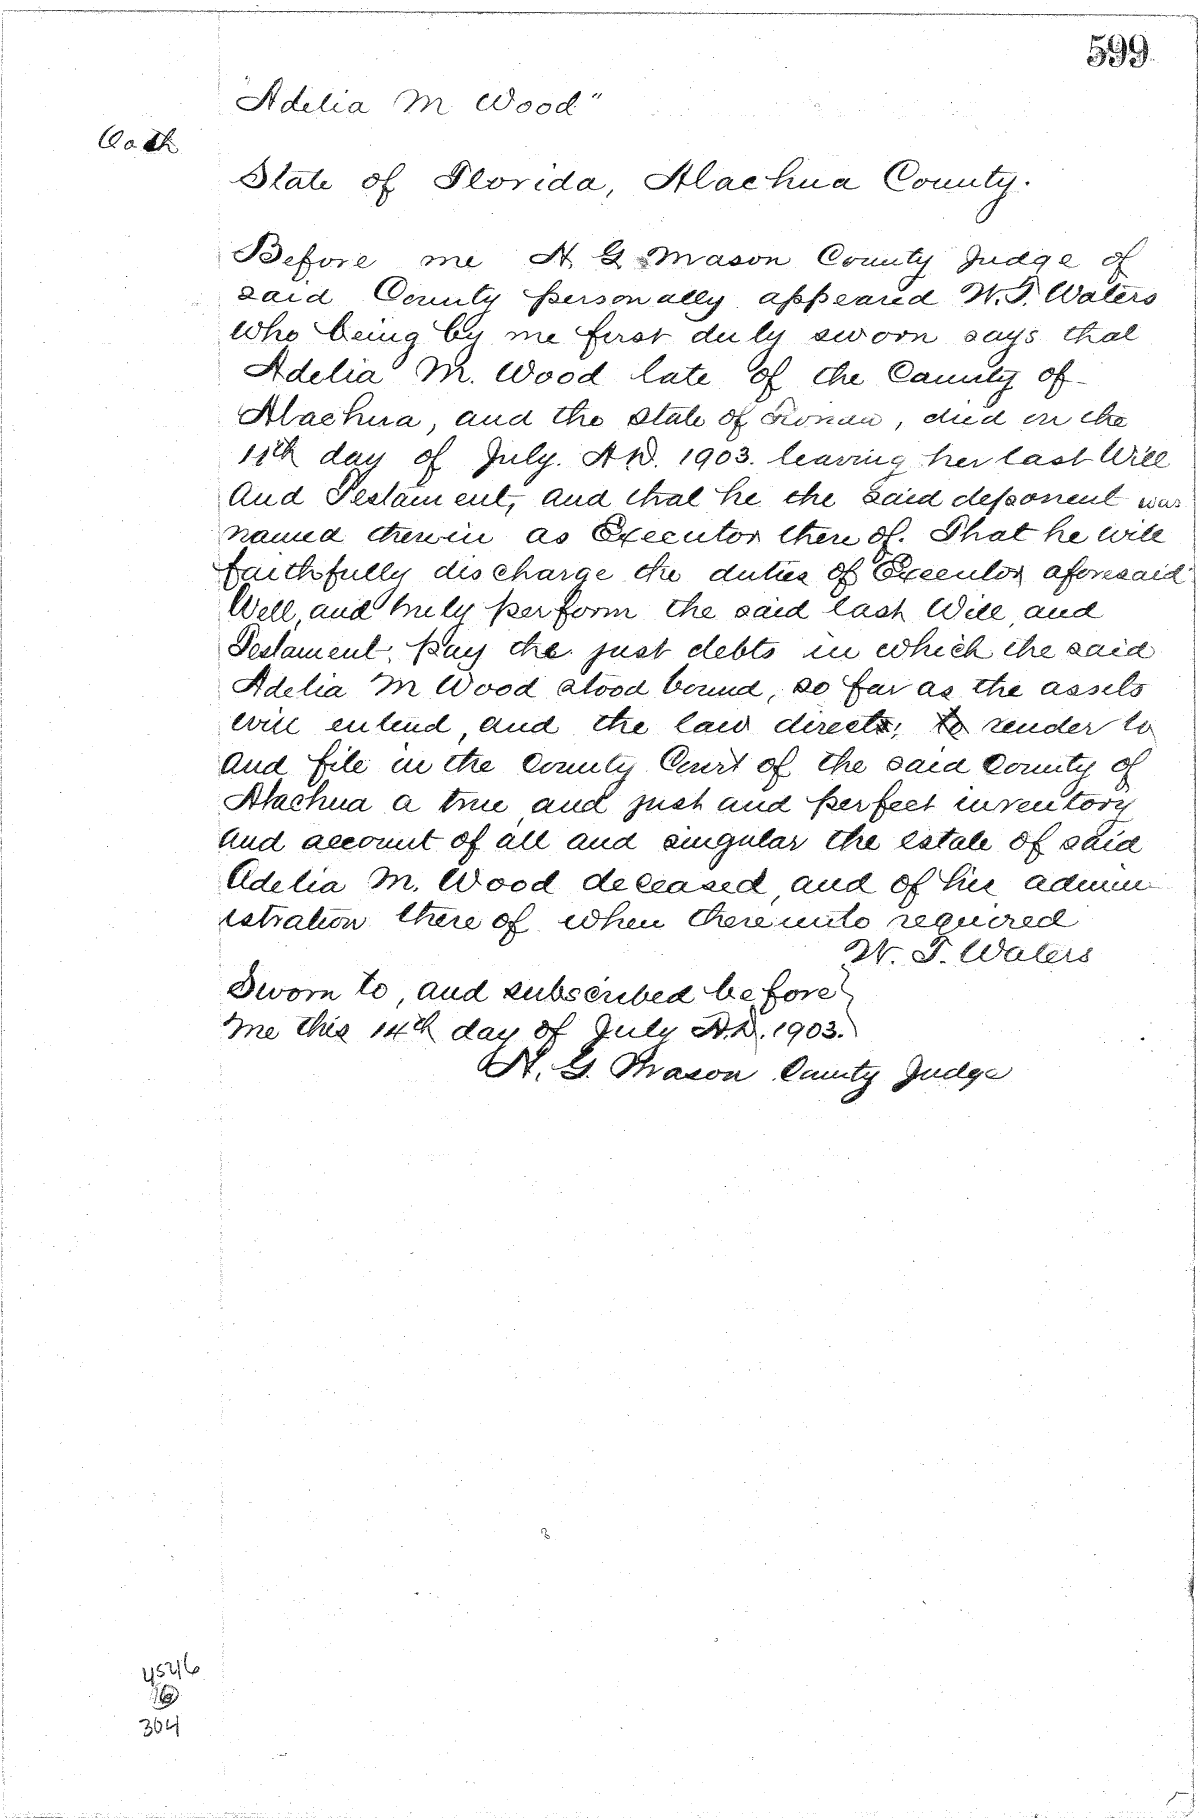 599
"Adelia M Wood"
Oath
State of Florida, Alachua County.
Before me H. G. Mason County Judge of
said County personally appeared W. T. Waters
who being by me first duly sworn says that
Adelia M. Wood late of the County of
Alachua, and the State of Florida, died on the
11th day of July. A.D. 1903. leaving her last Will
and Testament, and that he the said deponent was
named therein as Executor there of. That he will
faithfully discharge the duties of Executor aforesaid
Well, and truly perform the said last Will, and
Testament, pay the just debts in which the said
Adelia M Wood stood bound, so far as the assets
will extend, and the law directs, to render to
and file in the County Court of the said County of
Alachua a true, and just and perfect inventory
and account of all and singular the estate of said
Adelia M. Wood deceased, and of his admin
istration there of when thereunto required
W. T. Waters
Sworn to, and subscribed before
me this 14th day of July A.D. 1903.
H. G. Mason County Judge
4546
304